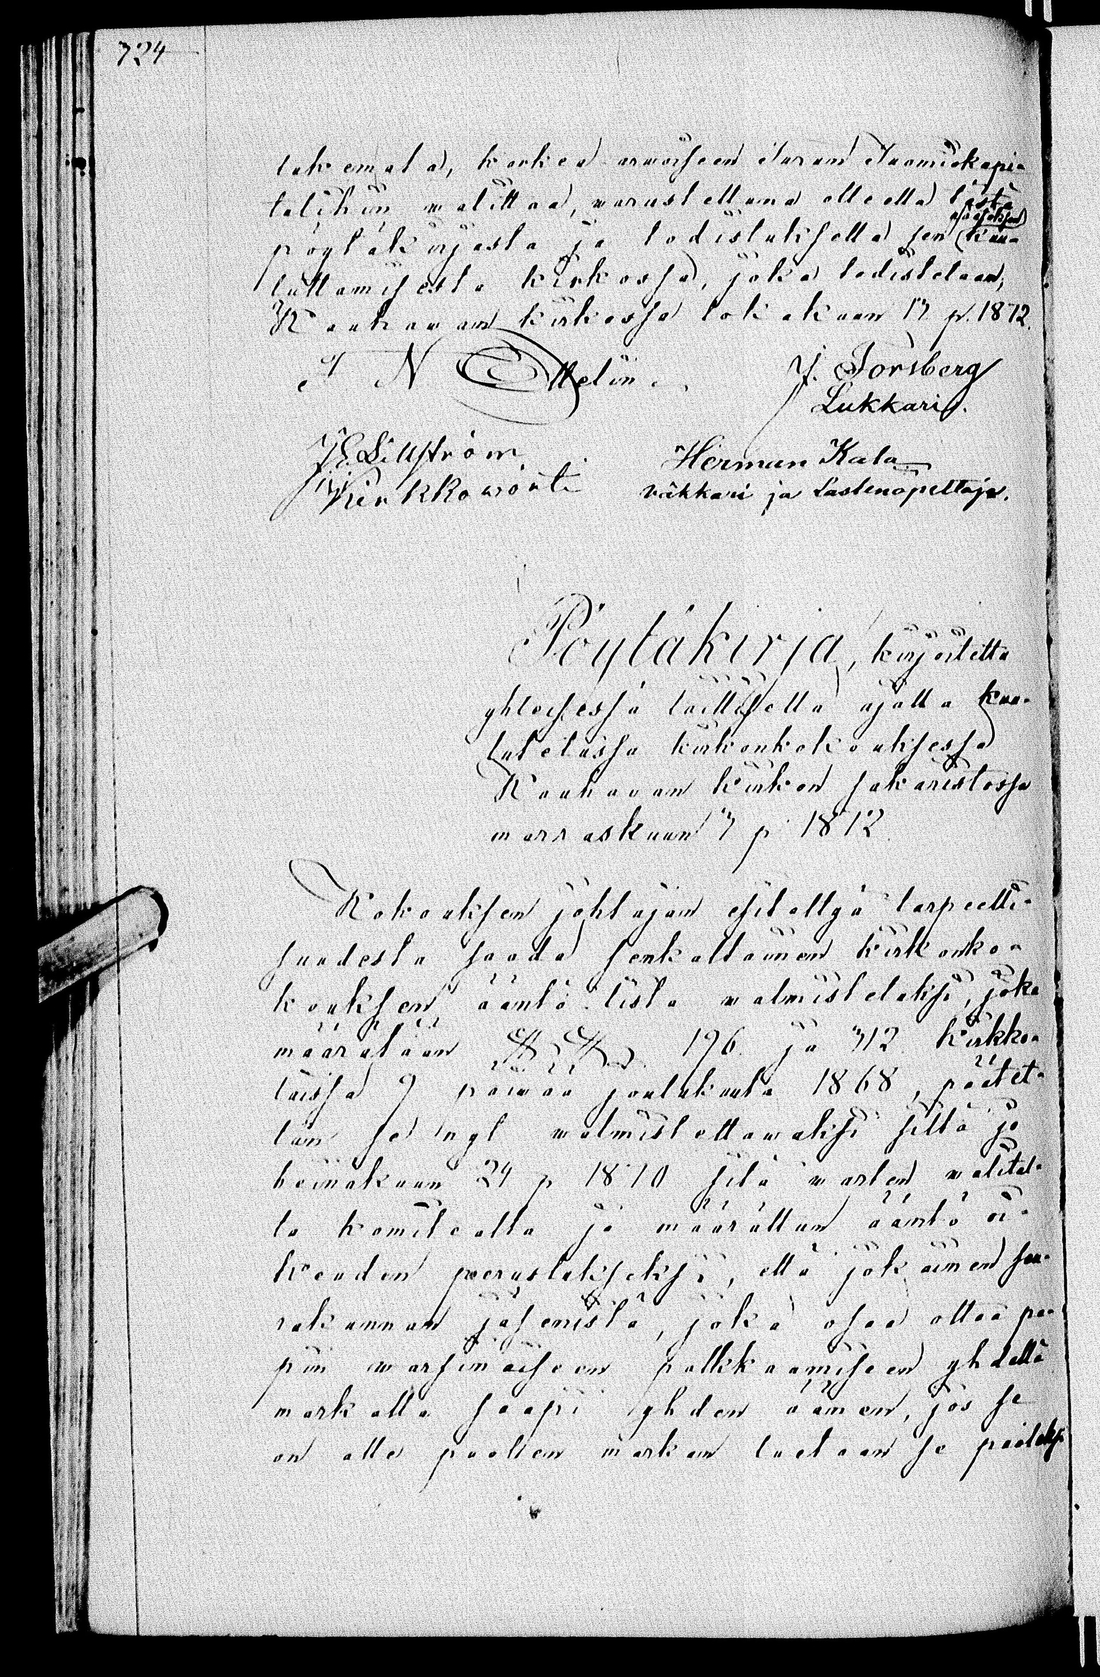 724
tukemala, korkea arwoiseen Turun Tuomiokapi-
telihin walittaa, warustettuna otteella tästä
pöytäkirjasta ja todistuksella sen kuu-
luttamisesta kirkossa, joka todistetaan,
Kauhawan kirkossa lokakuun 17 p. 1872.
J N Ottelin
J. Forsberg
Lukkari.
J E Lillström
Kirkkowärti
Herman Kala
väkkari ja Lastenopettaja.
Pöytäkirja, kirjoitettu
yhteisessä laillisella ajalla kuu-
lutetussa kirkonkokouksessa
Kauhavan kirkon sakaristossa
marraskuun 7 p 1872
Kokouksen johtajan esiteltyä tarpeelli-
suudesta saada senkaltainen kirkonko-
kouksen ääntö lista walmistetuksi, joka
määrätään §§ 196 ja 312 kirkko-
laissa 9 päiwää joulukuuta 1868, päätet-
tiin se nyt walmistettawaksi siltä jo
heinäkuun 24 p 1870 sitä warten walitul-
ta komitealta ja määrättiin ääntö oi-
keuden perustukseksi, että jokainen seu-
rakunnan jäsenistä, joka osaa ottaa pa-
pin warsinaiseen palkkaamiseen yhdellä
markalla saapi yhden äänen, jos se
on alle puolien markan luetaan se puoleksi